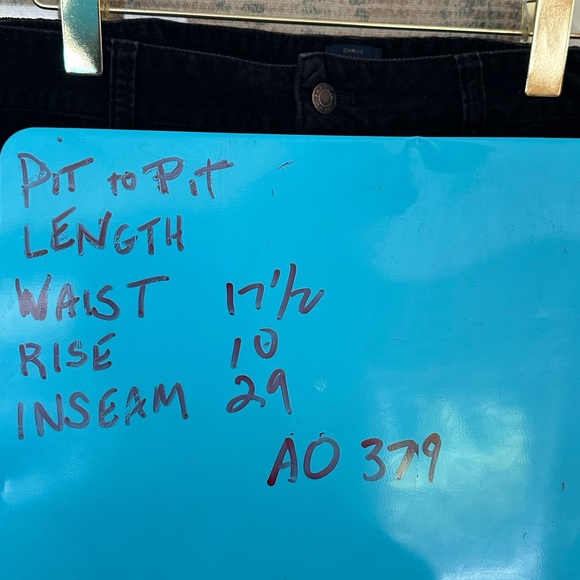 PIT to PIT
LENGTH
WAIST 17 1/2
RISE 10
INSEAM 29
AO 379